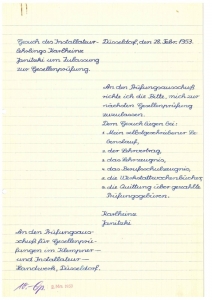 Gesuch des Installateur-
lehrlings Karlheinz
Janitzki um Zulassung
zur Gesellenprüfung.
Düsseldorf, den 28. Febr. 1953.
An den Prüfungsausschuß
richte ich die Bitte, mich zur
nächsten Gesellenprüfung
zuzulassen.
Dem Gesuch liegen bei:
1 Mein selbstgeschriebener Le-
benslauf,
2 der Lehrvertrag,
3 das Lehrzeugnis,
4 das Berufsschulzeugnis,
5 die Werkstattwochenbücher,
6 die Quittung über gezahlte
Prüfungsgebühren.
Karlheinz
Janitzki
An den Prüfungsaus-
schuß für Gesellenprü-
fungen im Klempner-
und Installateur-
Handwerk, Düsseldorf.